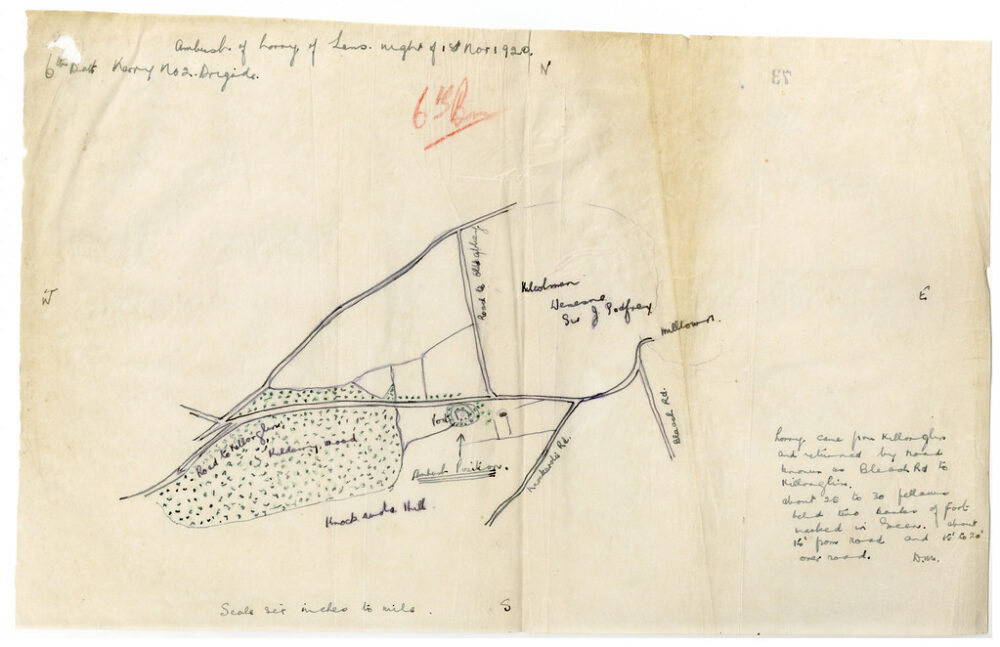 Ambush of lorry of Tans. night of 1st Nov 1920.
6th Batt Kerry No 2. Brigade.
N
73
6th Bn
W
E
Road to old abbey
Kilcolman
Demesne
Sir J Godfrey
Milltown.
Bleach Rd.
Fort
Road to Killorglin
Killarney road
Ambush Position.
Rd.
Hill
lorry came from Killorglin
and returned by road
known as Bleach Rd to
Killorglin.
about 25 to 30 fellows
held two banks of fort
marked in Green. about
15' from road and 15' to 20'
over road. D.M.
Scale six inches to mile.
S